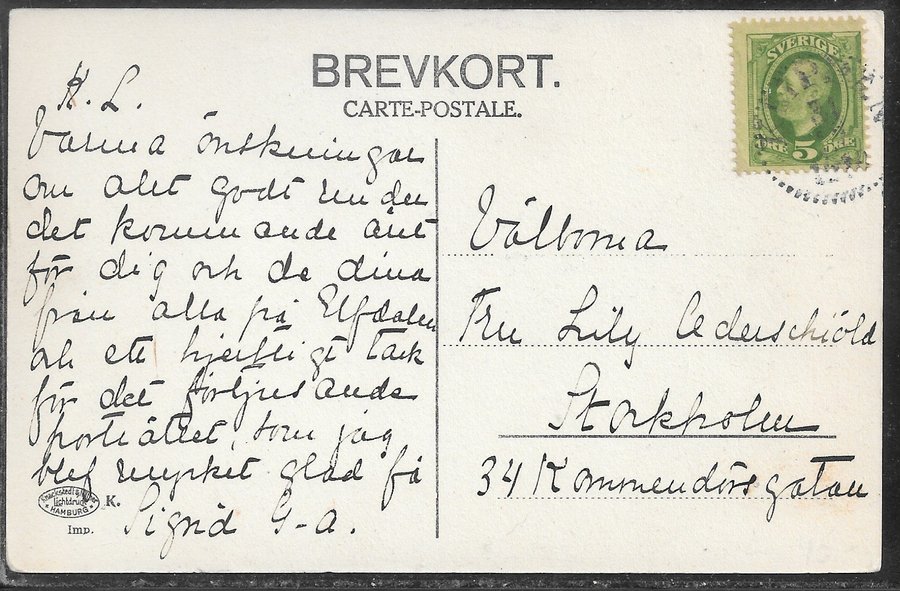 BREVKORT.
CARTE-POSTALE.
K. L.
Varma önskningar
om alet godt under
det kommande året
för dig och de dina
från alla på Elfdalen
och ett hjertligt tack
för det förtjusande
porträttet, som jag
blef mycket glad få
Sigrid G-a.
SVERIGE
ÖRE 5 ÖRE
Välborna
Fru Lily Cederschiöld
Stockholm
34 Kommendörsgatan
Knackstedt & Näther
Lichtdruck
HAMBURG
K.
Imp.